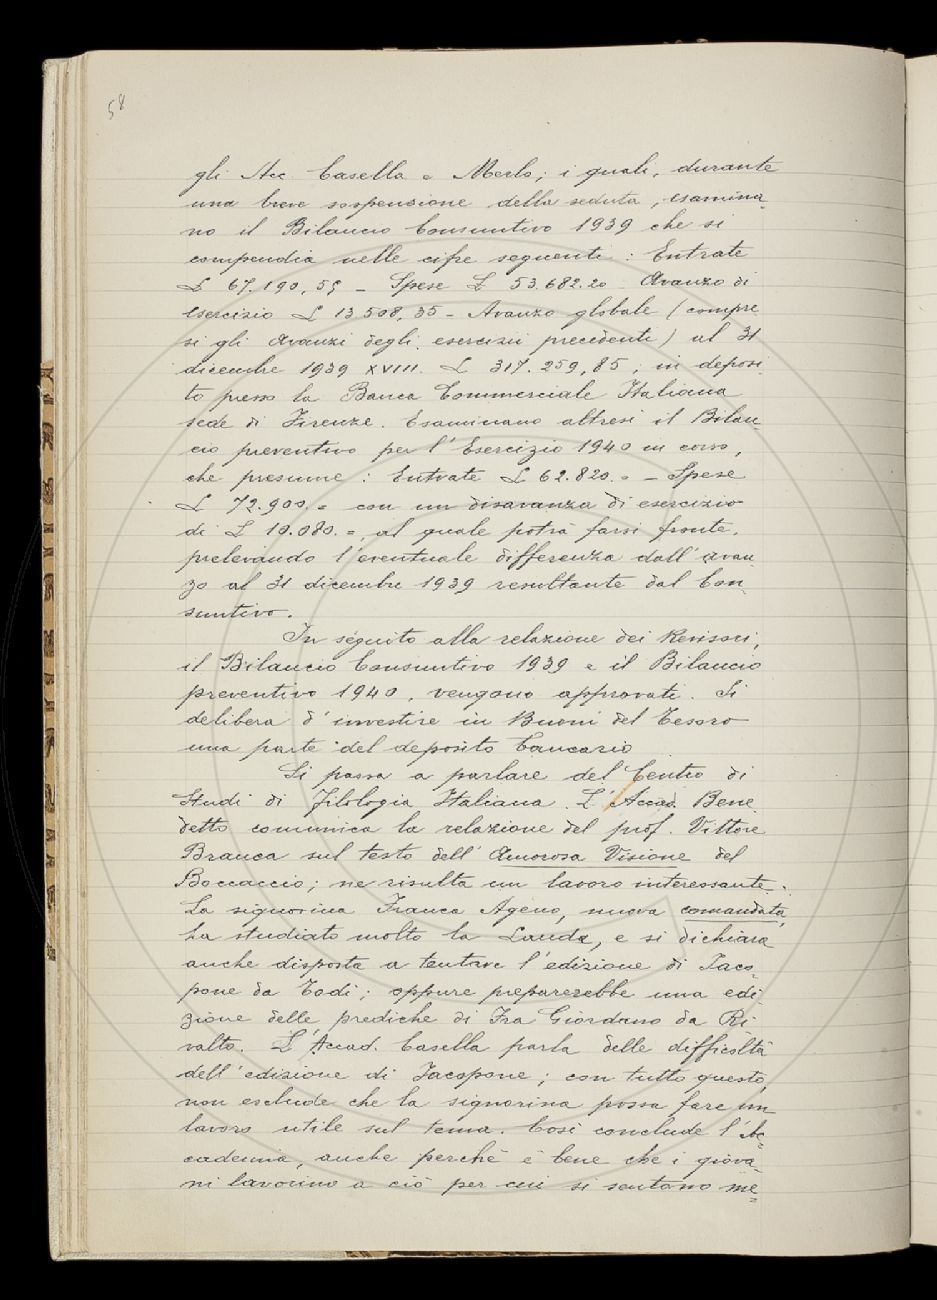 58
gli Acc. Casella e Merlo; i quali, durante
una breve sospensione della seduta, esamina-
no il Bilancio Consuntivo 1939 che si
compendia nelle cifre seguenti: Entrate
£ 67.190,55 - Spese £ 53.682.20 Avanzo di
esercizio £ 13508,35 - Avanzo globale (compre
si gli avanzi degli esercizii precedenti) al 31
dicembre 1939 XVIII. £ 317.259,85; in deposi
to presso la Banca Commerciale Italiana
sede di Firenze. Esaminano altresì il Bilan-
cio preventivo per l'Esercizio 1940 in corso,
che presume: Entrate £ 62.820.= - Spese
£ 72.900,= con un disavanzo di esercizio
di £ 10.080.=, al quale potrà farsi fronte,
prelevando l'eventuale differenza dall'avan-
zo al 31 dicembre 1939 resultante dal Con-
suntivo.
In séguito alla relazione dei Revisori,
il Bilancio Consuntivo 1939 e il Bilancio
preventivo 1940, vengono approvati. Si
delibera d'investire in Buoni del Tesoro
una parte del deposito bancario
Si passa a parlare del Centro di
Studi di Filologia Italiana. L'Accad. Bene
detto comunica la relazione del prof. Vittore
Branca sul testo dell'Amorosa Visione del
Boccaccio; ne risulta un lavoro interessante.
La signorina Franca Ageno, nuova comandata,
ha studiato molto la Lauda, e si dichiara
anche disposta a tentare l'edizione di Jaco-
pone da Todi; oppure preparerebbe una edi-
zione delle prediche di Fra Giordano da Ri-
valto. L'Accad. Casella parla delle difficoltà
dell'edizione di Jacopone; con tutto questo,
non esclude che la signorina possa fare un
lavoro utile sul tema. Così conclude l'Ac-
cademia, anche perchè è bene che i giova-
ni lavorino a ciò per cui si sentono me-